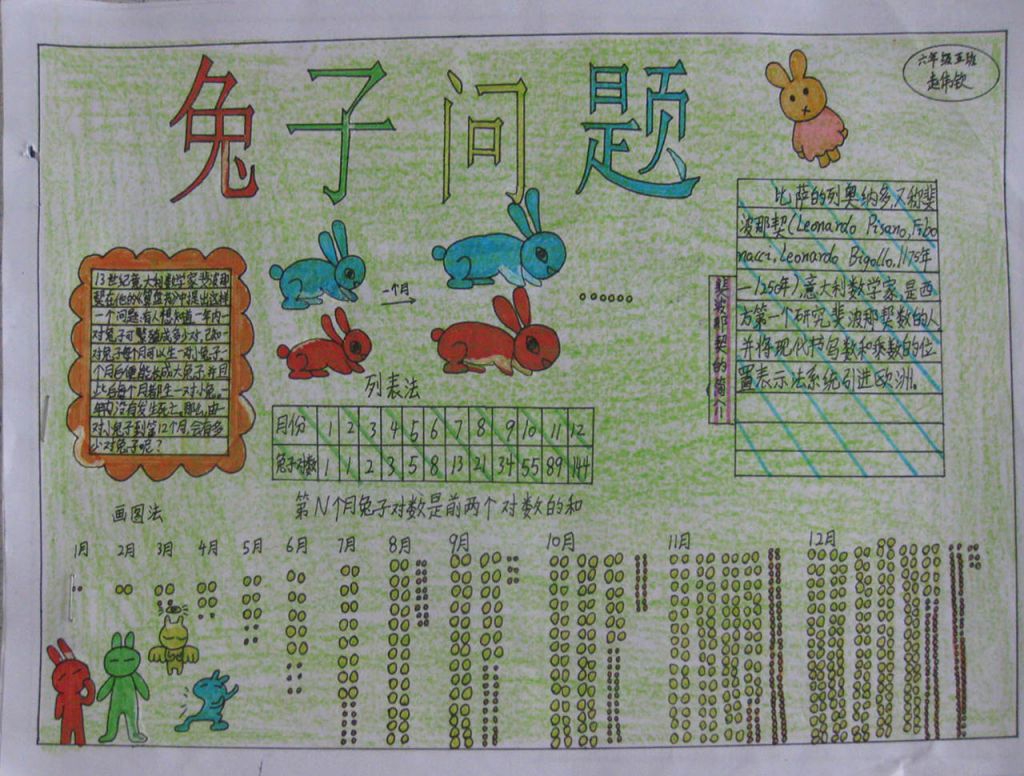 兔子问题
六年级五班
赵伟钦
13世纪意大利数学家斐波那
契在他的《算盘书》中提出这样
一个问题:有人想知道一年内一
对兔子可繁殖成多少对,已知一
对兔子每个月可以生一对小兔子一
个月后便能长成大兔子并且
此后每个月都生一对小兔。一
年内没有发生死亡。那么,由一
对小兔子到第12个月,会有多
少对兔子呢?
一个月
......
斐波那契的简介
比萨的列奥纳多又称斐
波那契(Leonardo Pisano,Fibo
nacci,Leonardo Bigollo,1175年
-1250年)意大利数学家是西
方第一个研究斐波那契数的人
并将现代书写数和乘数的位
置表示法系统引进欧洲。
列表法
月份 1 2 3 4 5 6 7 8 9 10 11 12
兔子对数 1 1 2 3 5 8 13 21 34 55 89 144
第N个月兔子对数是前两个对数的和
画图法
1月 2月 3月 4月 5月 6月 7月 8月 9月 10月 11月 12月